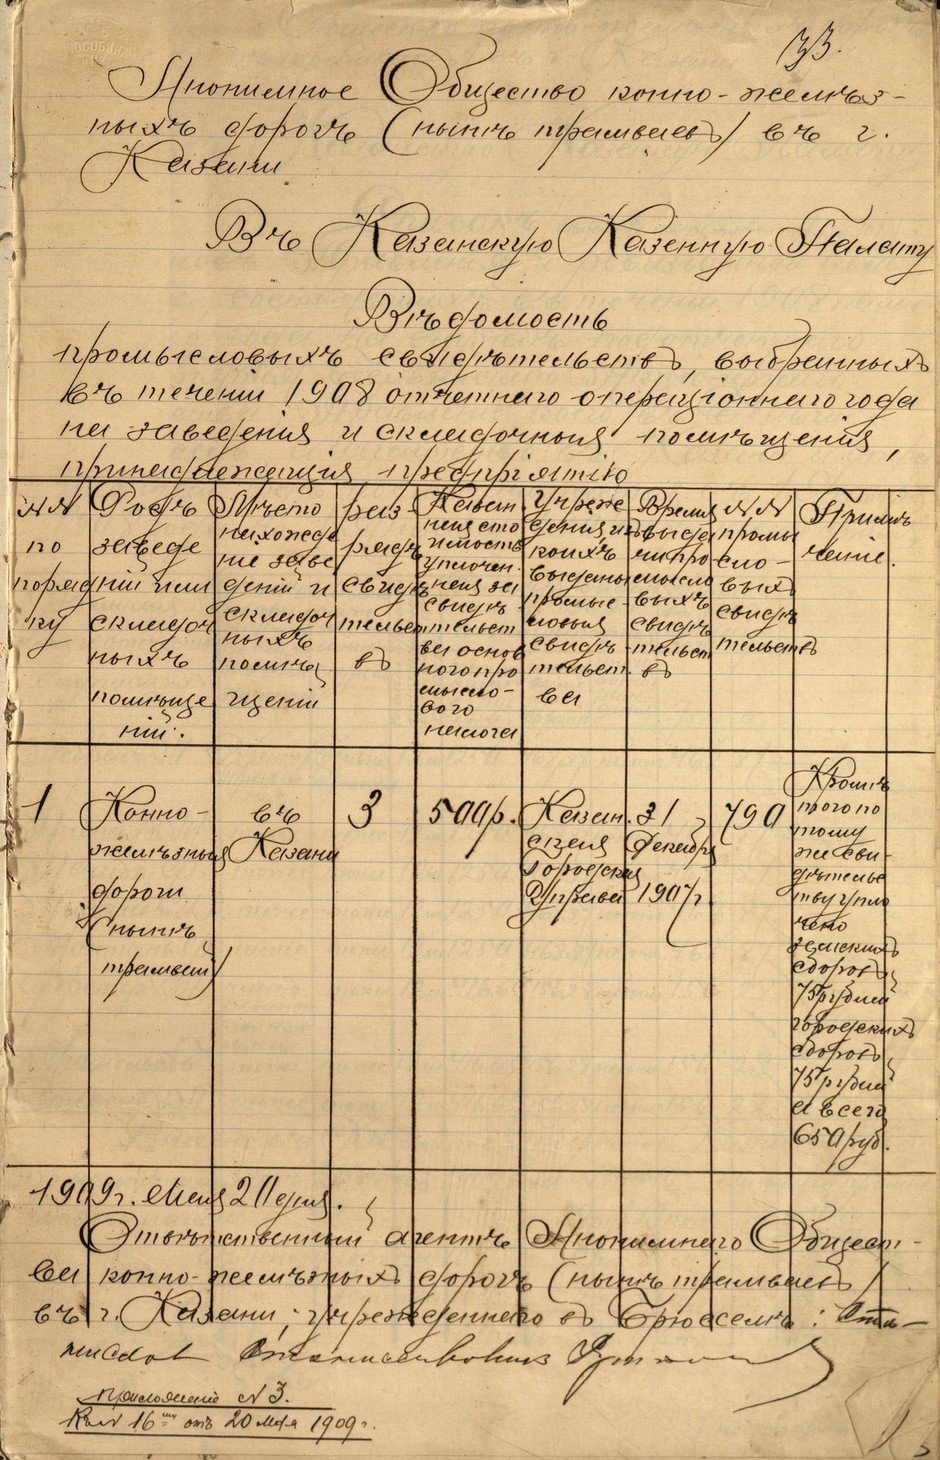 33.
Анонимное Общество конно-желѣз-
ныхъ дорогъ (нынѣ трамваевъ) въ г.
Казани
Въ Казанскую Казенную Палату
Вѣдомость
промысловыхъ свидѣтельствъ, выбранныхъ
въ теченіи 1908 отчетнаго операціоннаго года
на заведенія и складочныя помѣщенія,
принадлежащія предпріятію
№№
по
поряд
ку
Родъ
заведе
ній или
складоч
ныхъ
помѣще
ній.
Мѣсто
нахожде
ніе заве
деній и
складоч
ныхъ
помѣ
щеній
раз-
рядъ
свидѣ
тельст
въ
Казен.
ная сто
имость
уплочен.
ная за
свидѣ
тельст
ва основ
ного про
мысло-
вого
налога
Учреж
денія изъ
коихъ
выданы
промыс
ловыя
свидѣ
тельст.
ва
Время
выда
чи про
мысло
выхъ
свидѣ
тельст
въ
№№
промы
сло-
выхъ
свидѣ
тельствъ
Примѣ
чаніе.
1
Конно-
желѣзныя
дороги
(нынѣ
трамвай)
въ
Казани
3
500р.
Казан.
ская
Городская
Управа
31
Декабря
1907г.
790
Кромѣ
того по
тому
же сви-
дѣтельс
тву упло
чено
земскихъ
сборовъ
75 рублей
городскихъ
сборовъ
75 рублей
а всего
650 руб.
1909г. Мая 20 дня.
Отвѣтственный агентъ Анонимнаго Общест-
ва конно-желѣзныхъ дорогъ (нынѣ трамваевъ)
въ г. Казани, учрежденнаго въ Брюсселѣ: Ста-
ниславъ Станиславовичъ
приложеніе № 3.
Къ № 16 отъ 20 Мая 1909г.